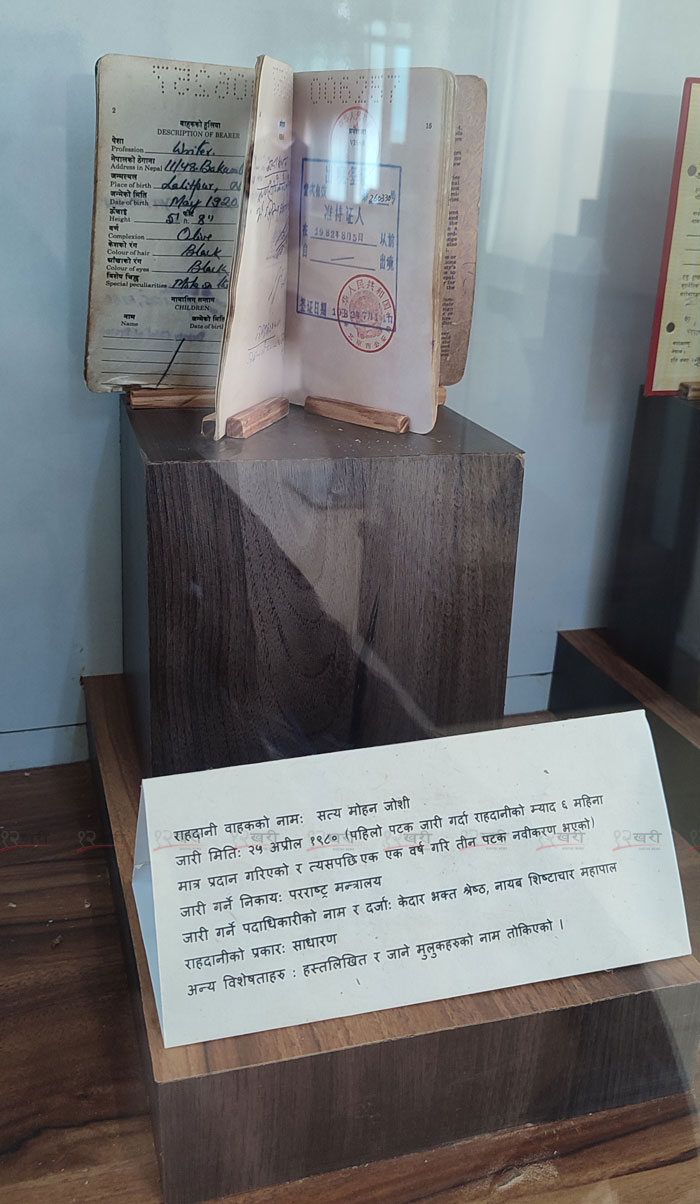 2
वाहकको हुलिया
DESCRIPTION OF BEARER
पेशा
Profession Writer.
नेपालको ठेगाना
Address in Nepal 11/48 Bakam
जन्मस्थल
Place of birth Lalitpur,
जन्मेको मिति
Date of birth May 1920
ऊँचाई
Height 5' 8"
वर्ण
Complexion Olive
केशको रंग
Colour of hair Black
आँखाको रंग
Colour of eyes Black
विशेष चिह्न
Special peculiarities Mole on the
नाबालिग सन्तान
CHILDREN
नाम जन्मेको मिति
Name Date of birth
प्रवेशाज्ञा
VISAS
准持证人
以前
出境
签证日期
राहदानी वाहकको नामः सत्य मोहन जोशी
जारी मितिः २५ अप्रील १९८० (पहिलो पटक जारी गर्दा राहदानीको म्याद ६ महिना
मात्र प्रदान गरिएको र त्यसपछि एक एक वर्ष गरि तीन पटक नवीकरण भएको)
जारी गर्ने निकायः परराष्ट्र मन्त्रालय
जारी गर्ने पदाधिकारीको नाम र दर्जाः केदार भक्त श्रेष्ठ, नायब शिष्टाचार महापाल
राहदानीको प्रकारः साधारण
अन्य विशेषताहरु : हस्तलिखित र जाने मुलुकहरुको नाम तोकिएको ।
१२खरी